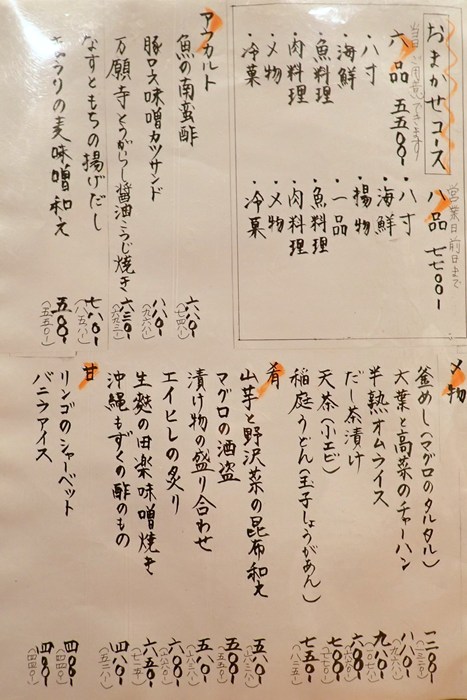 おまかせコース
できます
六品 五五〇〇-
・八寸
・海鮮
・魚料理
・肉料理
・〆物
・冷菓
営業日前日まで
八品 七七〇〇-
・八寸
・海鮮
・揚物
・一品
・魚料理
・肉料理
・〆物
・冷菓
アラカルト
魚の南蛮酢 六八〇- (七四八-)
豚ロース味噌カツサンド 八八〇- (九六八-)
万願寺とうがらし醤油こうじ焼き 六三〇- (六九三-)
なすともちの揚げだし 七八〇- (八五八-)
きゅうりの麦味噌和え 五〇〇- (五五〇-)
〆物
釜めし(マグロのタルタル) 一二〇〇- (一三二〇-)
大葉と高菜のチャーハン 八八〇- (九六八-)
半熟オムライス 九八〇- (一〇七八-)
だし茶漬け 六〇〇- (六六〇-)
天茶(小エビ) 七〇〇- (七七〇-)
稲庭うどん(玉子しょうがあん) 七五〇- (八二五-)
肴
山芋と野沢菜の昆布和え 五八〇- (六三八-)
マグロの酒盗 五〇〇- (五五〇-)
漬け物の盛り合わせ 五八〇- (六三八-)
エイヒレの炙り 六〇〇- (六六〇-)
生麩の田楽味噌焼き 六五〇- (七一五-)
沖縄もずくの酢のもの 四八〇- (五二八-)
甘
リンゴのシャーベット 四〇〇- (四四〇-)
バニラアイス 四〇〇- (四四〇-)